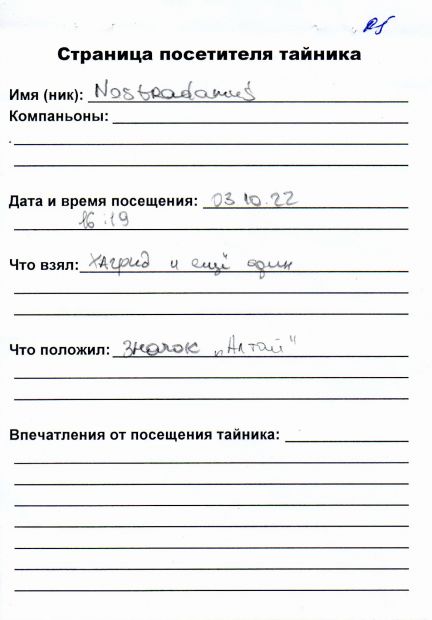 Страница посетителя тайника
Имя (ник): Nostradamus
Компаньоны:
Дата и время посещения: 03 10.22
16:19
Что взял: Хагрид и ещё один
Что положил: значок "Алтай"
Впечатления от посещения тайника: